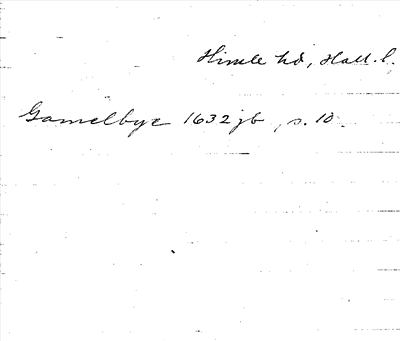 Himle hd, Hall. l.
Gamelbye 1632 jb, s. 10.